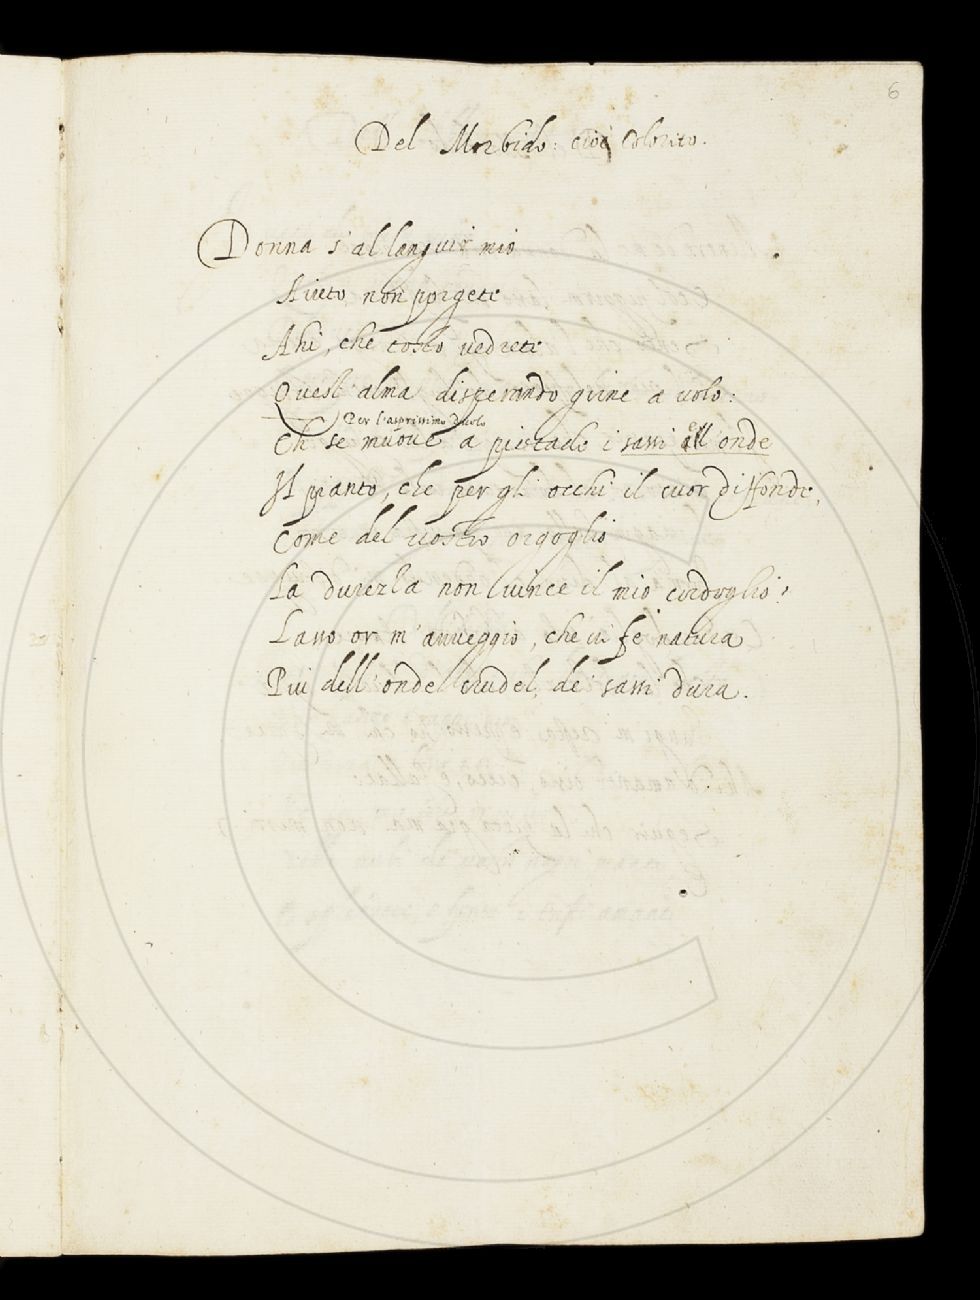 6
Del Morbido: cioè Colorito.
Donna s'al languir mio
Aiuto non porgete
Ahi, che tosto vedrete
Quest'alma disperando girne a volo:
Per l'asprissimo duolo
Ch se muove a pietade i sassi e ll'onde
Il pianto, che per gli occhi il cuor diffonde,
Come del vostro orgoglio
La durezza non vince il mio cordoglio?
Lasso or m'avveggio, che vi fe natura
Piu dell'onde crudel, de' sassi dura.